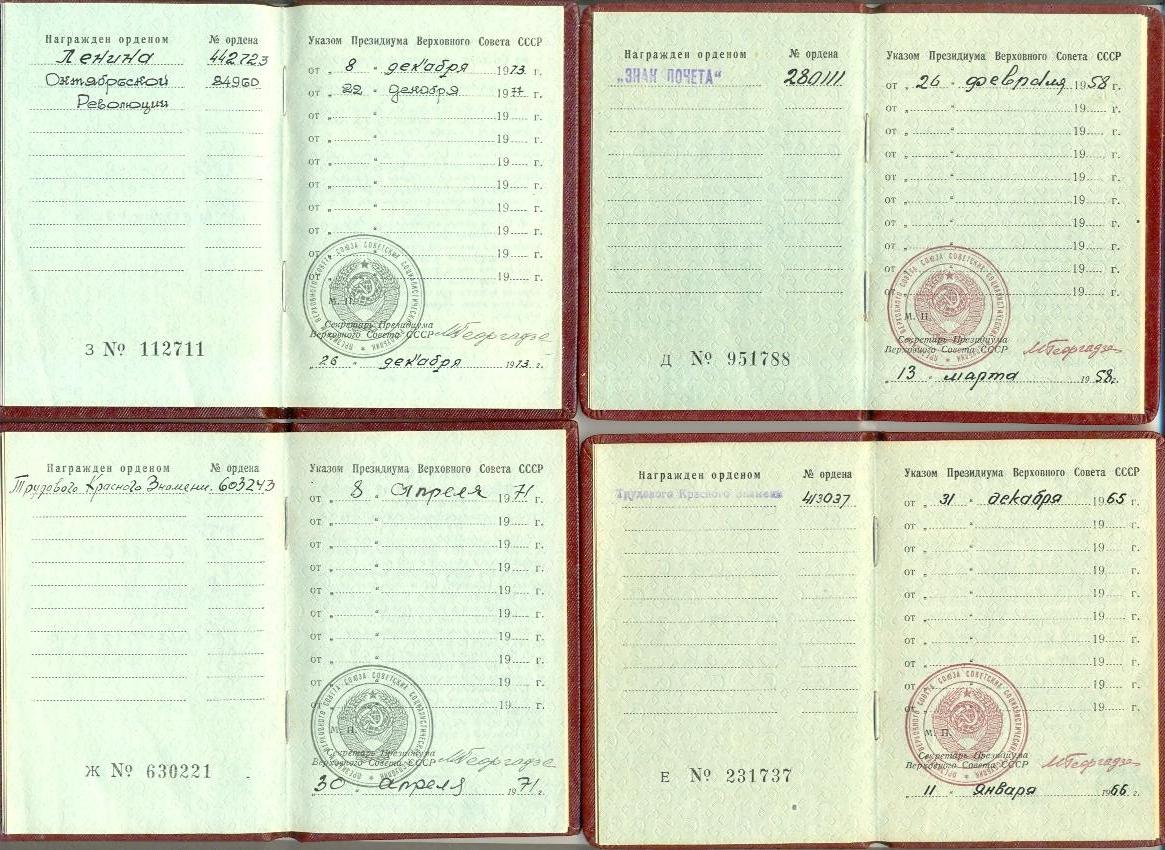 Награжден орденом № ордена
Ленина 442723
Октябрьской 84960
Революции
З № 112711
Указом Президиума Верховного Совета СССР
от „ 8 “ декабря 1973 г.
от „ 22 “ декабря 1977 г.
от „ “ 19 г.
от „ “ 19 г.
от „ “ 19 г.
от „ “ 19 г.
от „ “ 19 г.
от „ “ 19 г.
от „ “ 19 г.
от „ “ 19 г.
М. П.
Секретарь Президиума
Верховного Совета СССР МГеоргадзе
„ 26 “ декабря 1973 г.
Награжден орденом № ордена
„ЗНАК ПОЧЕТА“ 280111
Д № 951788
Указом Президиума Верховного Совета СССР
от „ 26 “ февраля 1958 г.
от „ “ 19 г.
от „ “ 19 г.
от „ “ 19 г.
от „ “ 19 г.
от „ “ 19 г.
от „ “ 19 г.
от „ “ 19 г.
от „ “ 19 г.
от „ “ 19 г.
М. П.
Секретарь Президиума
Верховного Совета СССР МГеоргадзе
„ 13 “ марта 1958 г.
Награжден орденом № ордена
Трудового Красного Знамени. 603243
Ж № 630221
Указом Президиума Верховного Совета СССР
от „ 8 “ апреля 1971 г.
от „ “ 19 г.
от „ “ 19 г.
от „ “ 19 г.
от „ “ 19 г.
от „ “ 19 г.
от „ “ 19 г.
от „ “ 19 г.
от „ “ 19 г.
от „ “ 19 г.
М. П.
Секретарь Президиума
Верховного Совета СССР МГеоргадзе
„ 30 “ апреля 1971 г.
Награжден орденом № ордена
Трудового Красного Знамени 413037
Е № 231737
Указом Президиума Верховного Совета СССР
от „ 31 “ декабря 1965 г.
от „ “ 19 г.
от „ “ 19 г.
от „ “ 19 г.
от „ “ 19 г.
от „ “ 19 г.
от „ “ 19 г.
от „ “ 19 г.
от „ “ 19 г.
от „ “ 19 г.
М. П.
Секретарь Президиума
Верховного Совета СССР МГеоргадзе
„ 11 “ января 1966 г.